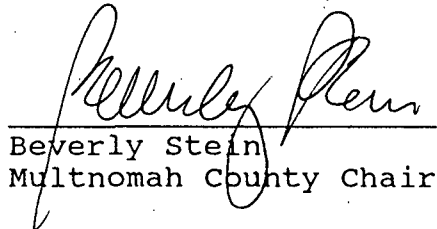 Beverly Stein
Beverly Stein
Multnomah County Chair